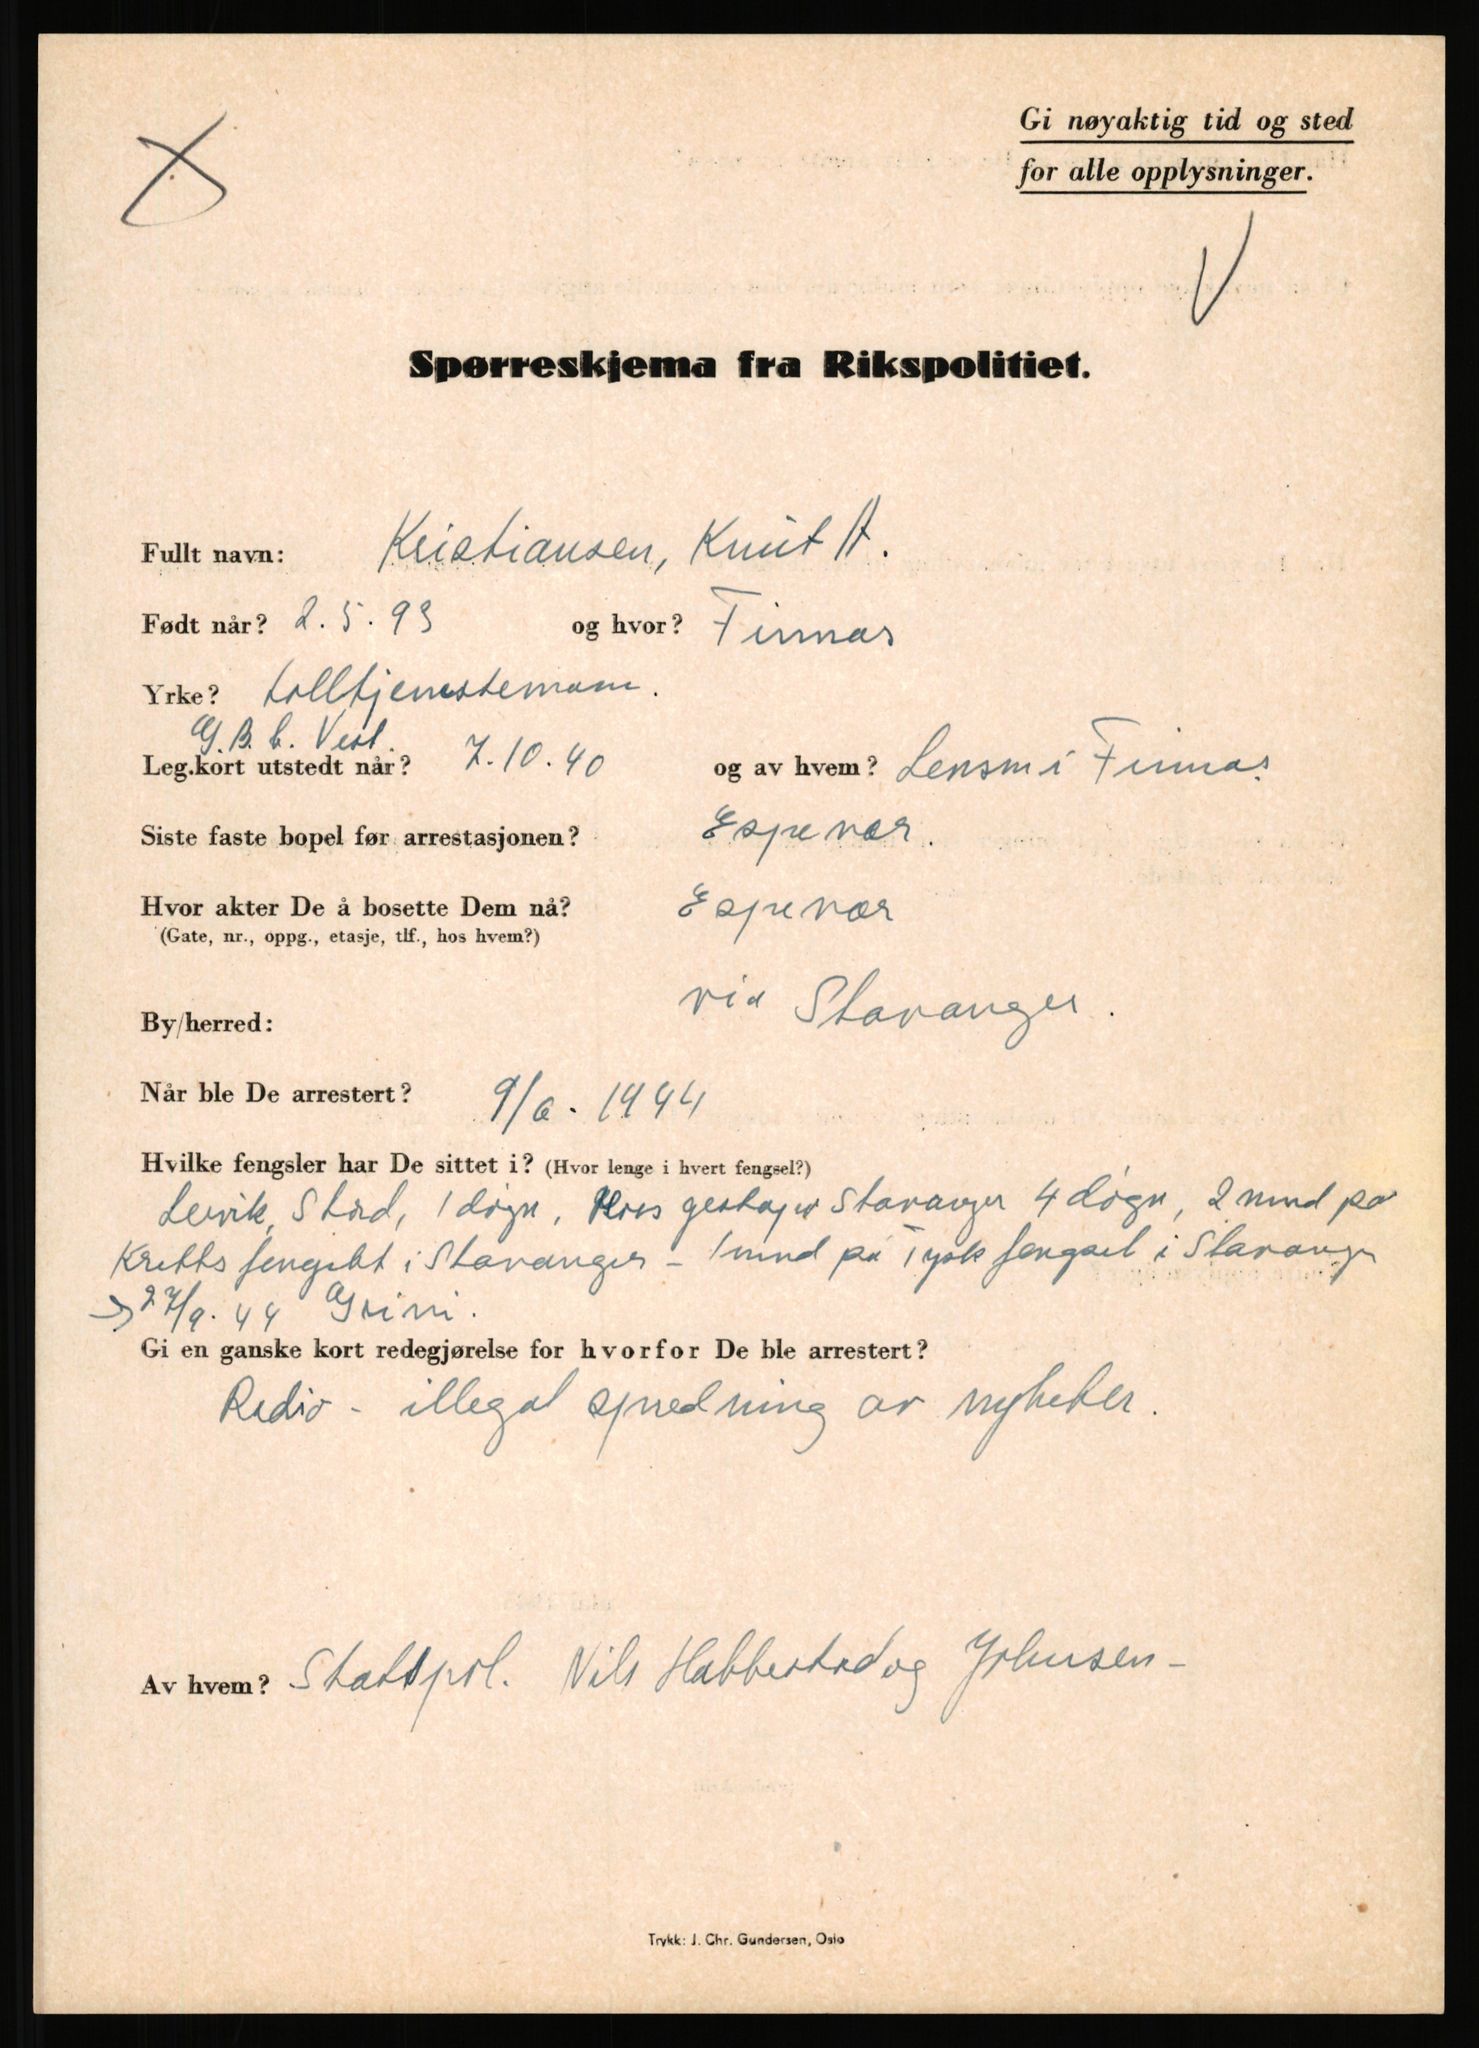 Gi nøyaktig tid og sted
for alle opplysninger.
Spørreskjema fra Rikspolitiet.
Fullt navn: Kristiansen, Knut A.
Født når? 2.5.93 og hvor? Finnas
Yrke? tolltjenestemann.
G.B.b. Vest.
Leg.kort utstedt når? 7.10.40 og av hvem? Lensm i Finnas.
Siste faste bopel før arrestasjonen? Espevær.
Hvor akter De å bosette Dem nå? Espevær
(Gate, nr., oppg., etasje, tlf., hos hvem?)
via Stavanger.
By/herred:
Når ble De arrestert? 9/6. 1944
Hvilke fengsler har De sittet i? (Hvor lenge i hvert fengsel?)
Leirvik, Stord, 1 døgn, Hos gestapo Stavanger 4 døgn, 2 mnd på
Kretts fengslet i Stavanger - 1 mnd på Tysk fengsel i Stavanger
→ 27/9. 44 Grini.
Gi en ganske kort redegjørelse for hvorfor De ble arrestert?
Radio - illegal spredning av nyheter.
Av hvem? Statspol. Nils Habbestad og Johnsen -
Trykk: J. Chr. Gundersen, Oslo